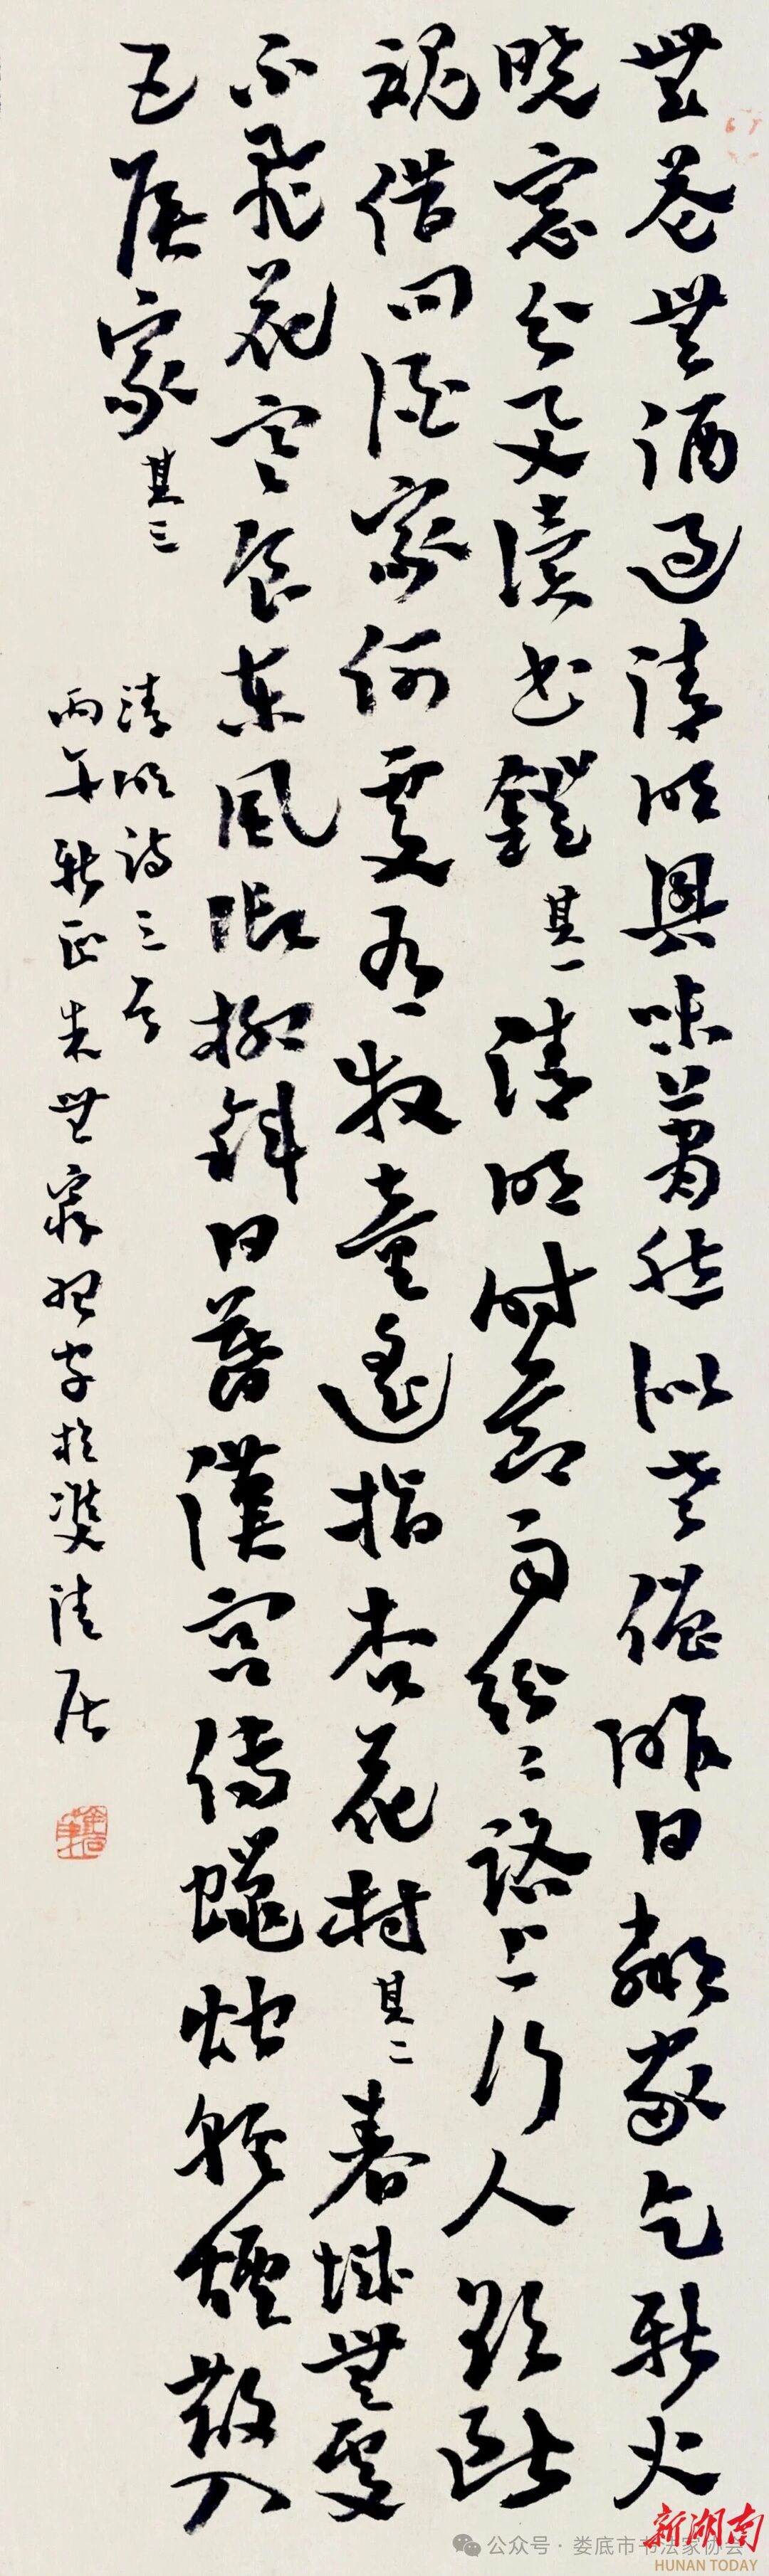 無花無酒過清明興味蕭然似老僧昨日鄰家乞新火
曉窗分與讀書鐙其一清明時節雨紛〻路上行人欲斷
魂借問酒家何處有牧童遙指杏花村其二春城無處
不飛花寒食東風御柳斜日暮漢宮傳蠟燭輕煙散入
五侯家其三
清明詩三首
丙午新正朱世
清居
公众号·娄底市书法家协会
新湖南
HUNAN TODAY